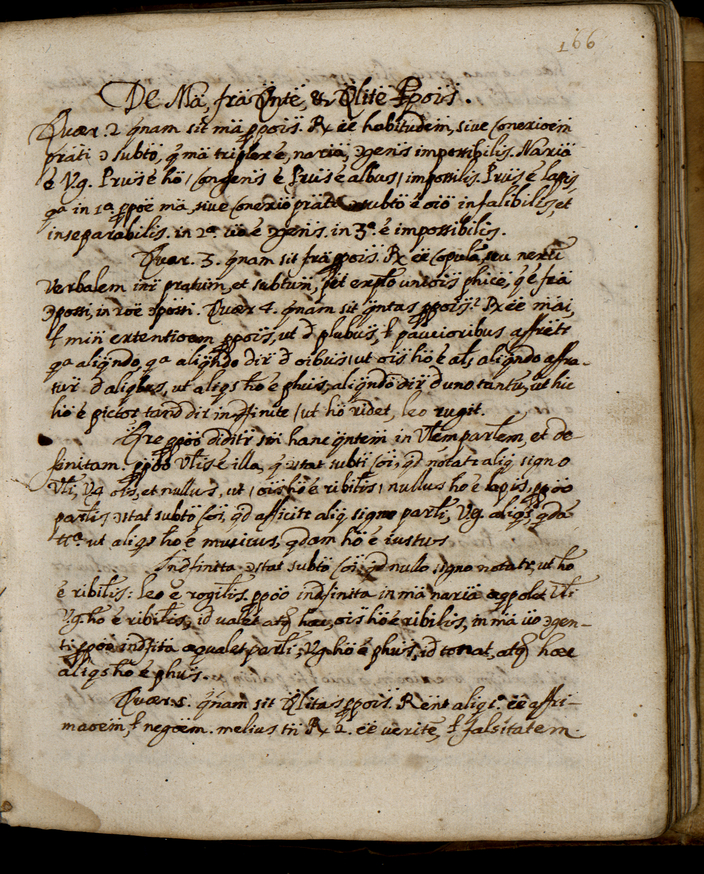 166
De Mã, frã Qnte, & Qlite Ppois.
Quær. 2 qnam sit mã ppois. Rx ẽe habitudem, sive Conexioem
prati subto, q mã triplex ẽ, naria, genis impossibilis. Naria
ẽ Vg. Pruis ẽ hõ, Congenis ẽ Pruis ẽ albus, impossilis. Pruis ẽ lapis,
qa in 1a ppoe mã, sive Conexio prati subto ẽ oio infalibilis, et
inseparabilis. in 2a ẽ genis, in 3a ẽ impossibilis.
Quær. 3. qnam sit frã ppois. Rx ẽe Copula, seu nexu
verbalem intr pratum, et subtum, phice, q ẽ frã
posti, in roe posti. Quær 4. qnam sit qntas ppois? Rx ẽe mai,
min extentioem ppois, ut d plubus, paucioribus affrete
qa aliqndo, qa aliqndo dir d oibus, ut ois hõ ẽ al, aliqndo affra-
tur d aliqbus, ut aliqs hõ ẽ phus, aliqndo dir d uno tantu, ut hic
hõ ẽ pictor tand dir indfinite, ut hõ ridet, leo rugit.
ppoo diditr hanc qntem in Vlem parlem, et de-
finitam. ppoo Vlis ẽ illa, q stat subti Coi, qd notatr aliq signo
Vli, Vg ois, et nullus, ut, ois hõ ẽ ribilis, nullus ho ẽ lapis, ppoo
parlis stat subto Coi, qd afficitr aliq signo parli, Vg. aliqs, qda
ut aliqs ho ẽ musicus, qdam hõ ẽ iustus
Indfinita stat subto Coi, qd nullo signo notatr, ut ho
ẽ ribilis: leo ẽ rogilis. ppoo indfinita in mã naria æqpolet Vli
Vg. ho ẽ ribilis, id valet atq hæc, ois hõ ẽ ribilis, in mã gen-
ti ppoo indfita æqualet parli, Vg. hõ ẽ phus, id tonat, atq hæc
aliqs hõ ẽ phus.
Quær. 5. qnam sit Qlitas ppois. Rent aliq ẽe affri-
maoem, negoem. melius tn Rx ẽe verite, falsitatem.